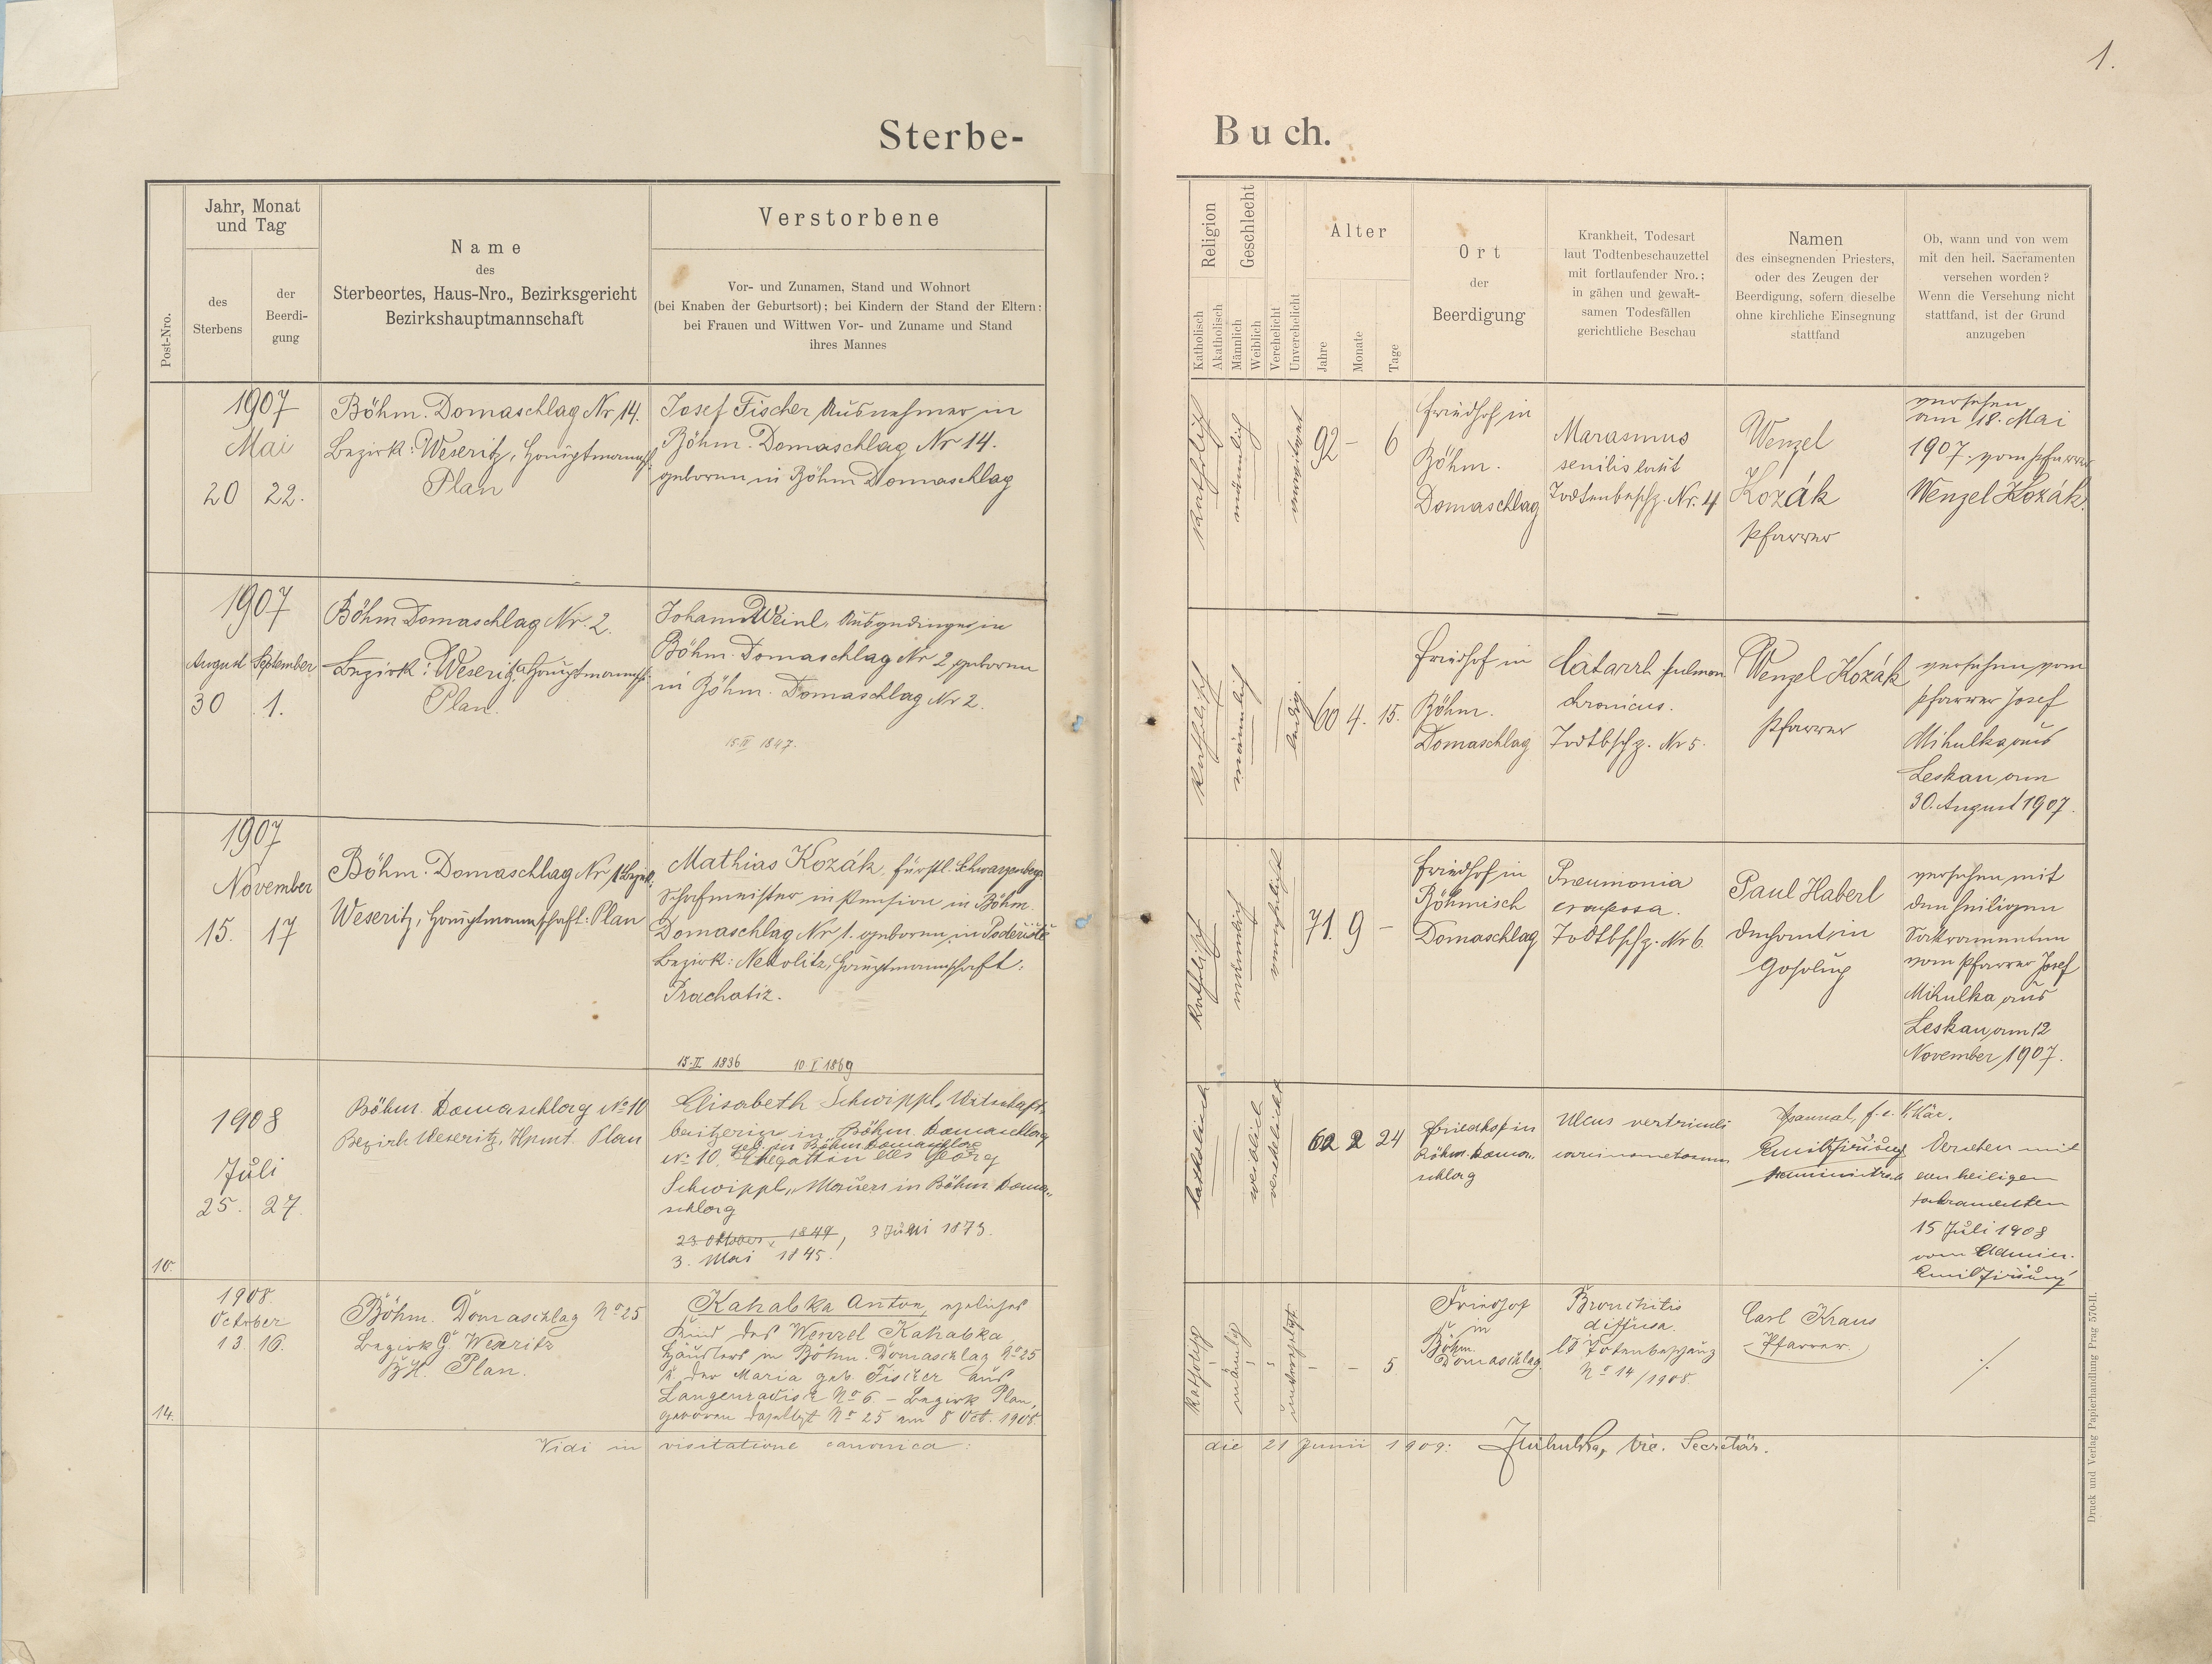 1.
Sterbe-
Buch.
Post-Nro.
Jahr, Monat
und Tag
des
Sterbens
der
Beerdi-
gung
Name
des
Sterbeortes, Haus-Nro., Bezirksgericht
Bezirkshauptmannschaft
Verstorbene
Vor- und Zunamen, Stand und Wohnort
(bei Knaben der Geburtsort); bei Kindern der Stand der Eltern:
bei Frauen und Wittwen Vor- und Zuname und Stand
ihres Mannes
Religion
Katholisch
Akatholisch
Geschlecht
Männlich
Weiblich
Verehelicht
Unverehelicht
Alter
Jahre
Monate
Tage
Ort
der
Beerdigung
Krankheit, Todesart
laut Todtenbeschauzettel
mit fortlaufender Nro.;
in gähen und gewalt-
samen Todesfällen
gerichtliche Beschau
Namen
des einsegnenden Priesters,
oder des Zeugen der
Beerdigung, sofern dieselbe
ohne kirchliche Einsegnung
stattfand
Ob, wann und von wem
mit den heil. Sacramenten
versehen worden?
Wenn die Versehung nicht
stattfand, ist der Grund
anzugeben
1907
Mai
20 22.
Böhm. Domaschlag Nr 14.
Bezirk: Weseritz, Hauptmannsch.
Plan
Josef Fischer Ausnehmer in
Böhm. Domaschlag Nr 14.
geboren in Böhm Domaschlag
katholisch
männlich
92 - 6
Friedhof in
Böhm.
Domaschlag
Marasmus
senilis laut
Todtenbeschz. Nr. 4
Wenzel
Kozák
Pfarrer
versehen
am 18. Mai
1907. vom Pfarrer
Wenzel Kozák.
1907
August September
30 1.
Böhm Domaschlag Nr. 2.
Bezirk: Weseritz, Hauptmannsch.
Plan.
Johann Weinl, Ausgedinger in
Böhm. Domaschlag Nr 2, geboren
in Böhm. Domaschlag Nr 2.
15. IV 1847.
katholisch
männlich
ledig.
60 4. 15.
Friedhof in
Böhm.
Domaschlag
Catarrh pulmon
chronicus.
Todtbschz. Nr 5.
Wenzel Kozák
Pfarrer
versehen vom
Pfarrer Josef
Mikulka aus
Leskau am
30. August 1907.
1907
November
15. 17
Böhm. Domaschlag Nr 1 Bezirk:
Weseritz, Hauptmannschaft: Plan
Mathias Kozák, fürstl. Schwarzenberg.
Schafmeister in Pension in Böhm.
Domaschlag Nr 1. geboren in Poderiště
Bezirk: Netolitz, Hauptmannschaft:
Prachatiz.
katholisch
männlich
verehelicht
71. 9 -
Friedhof in
Böhmisch
Domaschlag
Pneumonia
crouposa.
Todtbschz. Nr 6
Paul Haberl
Dechant in
Goſolup
versehen mit
den heiligen
Sakramenten
vom Pfarrer Josef
Mikulka aus
Leskau am 12
November 1907.
15. II 1836 10. I 1869
10.
1908
Juli
25. 27.
Böhm. Domaschlag No 10
Bezirk Weseritz, Hpmt. Plan
Elisabeth Schwippl, Wirtschafts-
besitzerin in Böhm. Domaschlag
geb. in Böhm Domaschlag
No 10. Ehegattin des Georg
Schwippl, Maurers in Böhm. Doma-
schlag
23. Oktober 1849, 3 Juni 1873.
3. Mai 1845.
katholisch
weiblich
verehelicht
62 2 24
Friedhof in
Böhm. Doma-
schlag
Ulcus ventriculi
carcinomatosum
Emil
Administrator
Versehen mit
den heiligen
Sakramenten
15 Juli 1908
vom Admin.
Emil
14.
1908.
October
13. 16.
Böhm. Domaschlag No 25
Bezirk G. Weseritz
B.H. Plan.
Kahabka Anton, eheliches
Kind des Wenzel Kahabka,
Häuslers in Böhm. Domaschlag No 25
u. der Maria geb. Fischer aus
Langenradisch No 6. - Bezirk Plan,
geboren daselbst No 25 am 8 Oct. 1908.
katholisch
männlich
unverehelicht
- - 5
Friedhof
in
Böhm.
Domaschlag
Bronchitis
diffusa.
lt Totenbeschauz
No 14/1908.
Carl Kraus
Pfarrer.
Vidi in visitatione canonica:
die 21 Junii 1909: Mikulka, vic. Secretär.
Druck und Verlag Papierhandlung Prag 570-II.